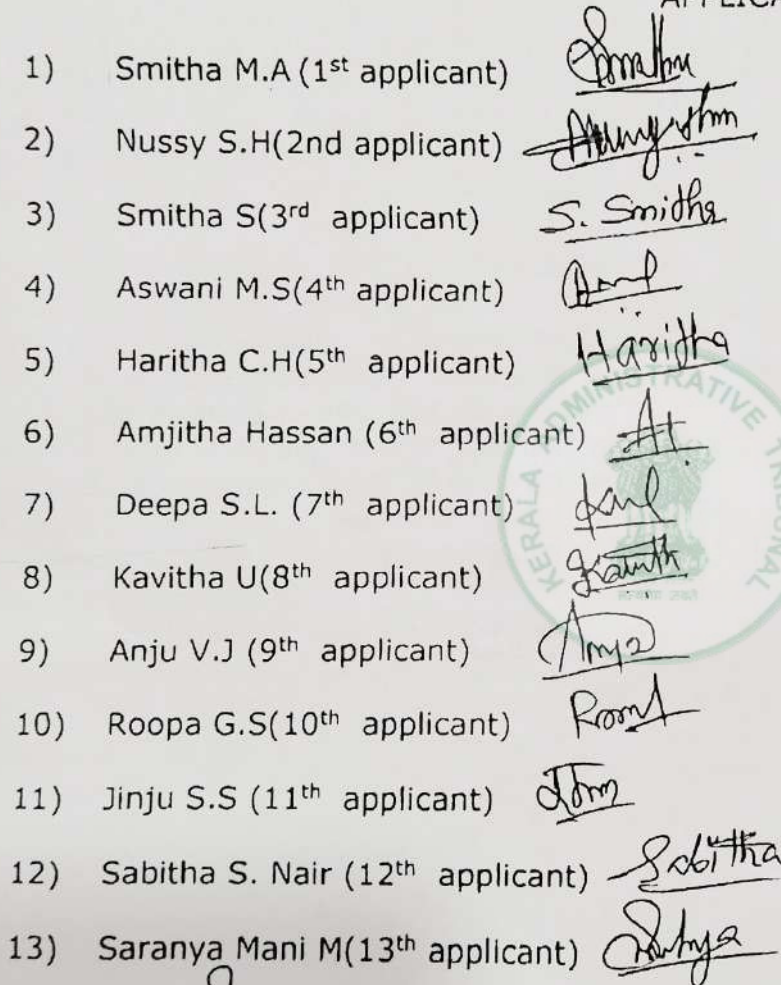 1) Smitha M.A (1st applicant)
2) Nussy S.H(2nd applicant)
3) Smitha S(3rd applicant) S. Smitha
4) Aswani M.S(4th applicant)
5) Haritha C.H(5th applicant) Haritha
6) Amjitha Hassan (6th applicant)
7) Deepa S.L. (7th applicant)
8) Kavitha U(8th applicant)
9) Anju V.J (9th applicant)
10) Roopa G.S(10th applicant)
11) Jinju S.S (11th applicant)
12) Sabitha S. Nair (12th applicant) Sabitha
13) Saranya Mani M(13th applicant)
KERALA ADMINISTRATIVE